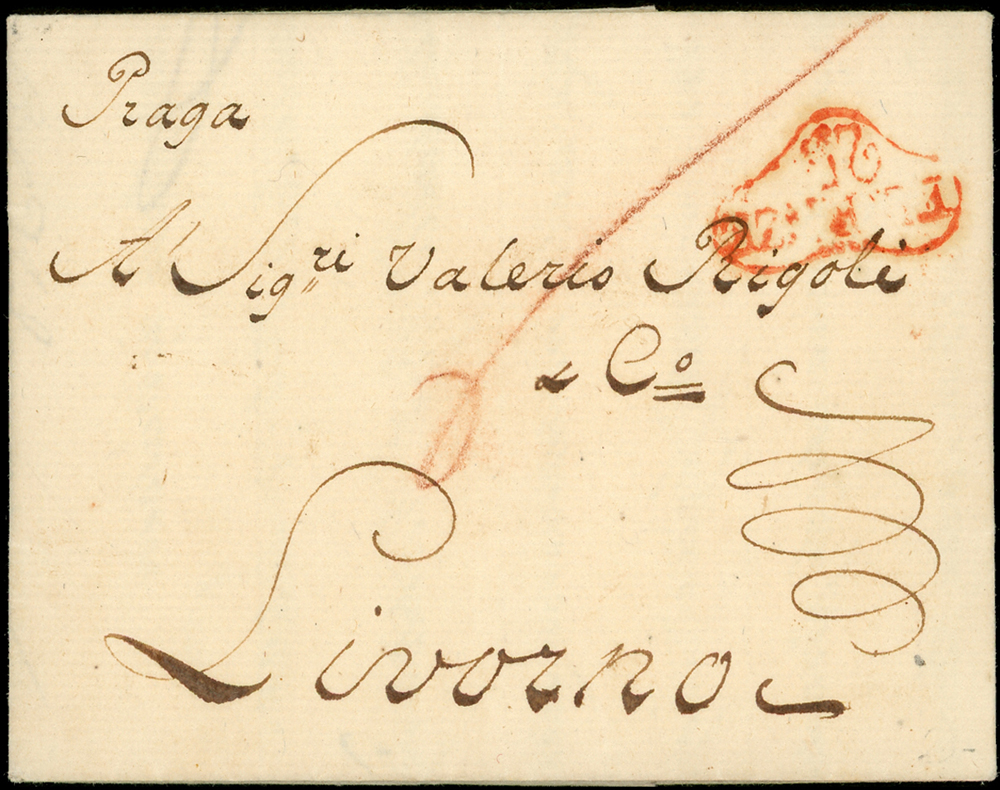 Praga
A' Sig.ri Valerio Rigoli
& Co
Livorno